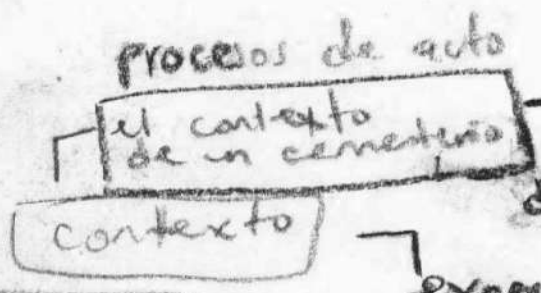 procesos de auto
el contexto
de un cementerio
contexto